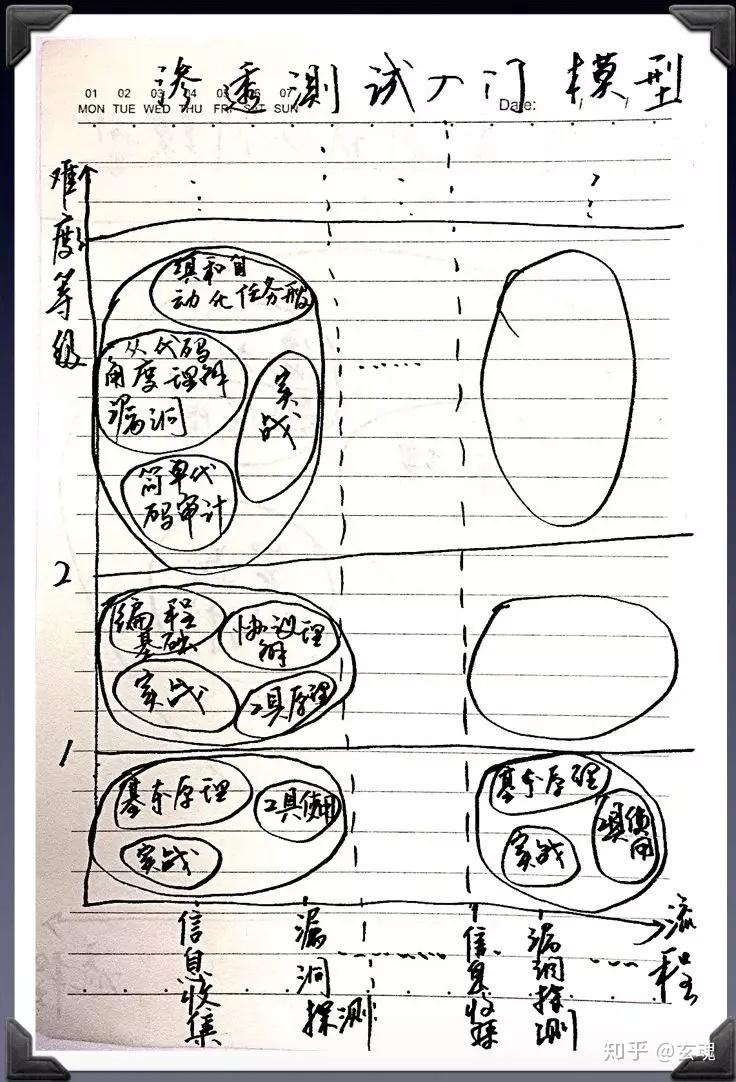 渗透测试入门模型
01 02 03 04 05 06 07
MON TUE WED THU FRI SAT SUN
Date: / /
难度等级
编和自
动化任务般
从代码
角度理解
漏洞
实战
简单代
码审计
2
编程
基础
协议理
解
实战
工具原理
1
基本原理
工具使用
实战
基本原理
工具使
用
实战
信息收集
漏洞探测
信息收集
漏洞探测
流程
知乎 @玄魂